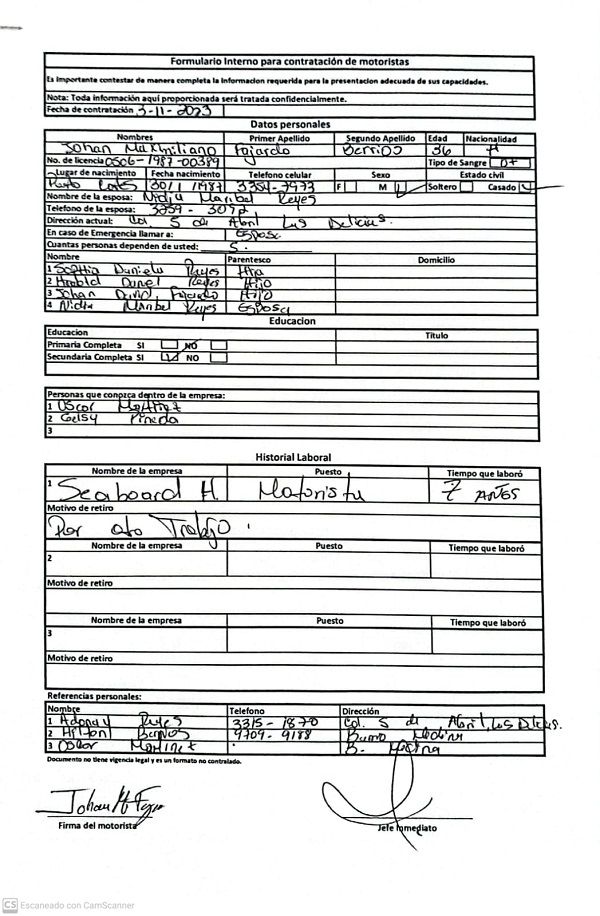 Formulario Interno para contratación de motoristas
Es importante contestar de manera completa la informacion requerida para la presentacion adecuada de sus capacidades.
Nota: Toda información aquí proporcionada será tratada confidencialmente.
Fecha de contratación 3-11-2023
Datos personales
Nombres Primer Apellido Segundo Apellido Edad Nacionalidad
Johan Maximiliano Fajardo Berrios 36 H
No. de licencia 0506-1987-00389 Tipo de Sangre O+
Lugar de nacimiento Fecha nacimiento Telefono celular Sexo Estado civil
Puerto Cortes 1987 3354-7973 F M Soltero Casado
Nombre de la esposa: Nidia Maribel Reyes
Telefono de la esposa: 3259-3072
Dirección actual: Col 5 de Abril Las Delicias.
En caso de Emergencia llamar a: Esposa
Cuantas personas dependen de usted: 5.
Nombre Parentesco Domicilio
1 Sophia Daniela Reyes Hija
2 Harold Daniel Reyes Hijo
3 Johan David Fajardo Hijo
4 Nidia Maribel Reyes Esposa
Educacion
Educacion Titulo
Primaria Completa SI NO
Secundaria Completa SI NO
Personas que conozca dentro de la empresa:
1 Oscar Martinez
2 Gelsy Pineda
3
Historial Laboral
Nombre de la empresa Puesto Tiempo que laboró
1 Seaboard H. Motorista 7 años
Motivo de retiro
Por oto Trabajo.
Nombre de la empresa Puesto Tiempo que laboró
2
Motivo de retiro
Nombre de la empresa Puesto Tiempo que laboró
3
Motivo de retiro
Referencias personales:
Nombre Telefono Dirección
1 Adonay Reyes 3315-1870 Col. 5 de Abril, Las Delicias.
2 Hilton Barrios 9709-9188 Barrio Medina
3 Oscar Martinez B. Medina
Documento no tiene vigencia legal y es un formato no controlado.
Johan M Fajardo
Firma del motorista Jefe inmediato
CS Escaneado con CamScanner